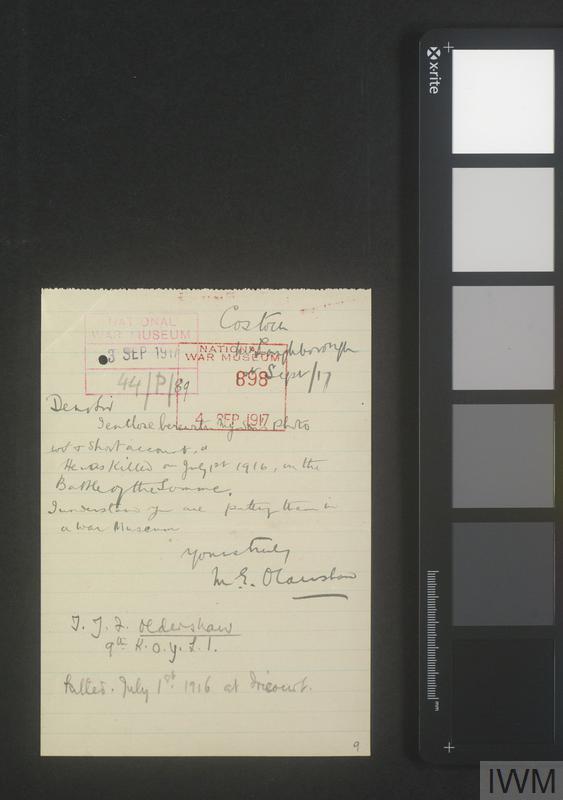 Costock
Nr Loughborough
Sept/17
NATIONAL
WAR MUSEUM
3 SEP 1917
44/P/89
NATIONAL
WAR MUSEUM
898
4 SEP 1917
Dear Sir
I enclose herewith my photo
& short account,
He was killed on July 1st 1916, in the
Battle of the Somme.
I understand you are putting them in
a War Museum
Yours truly
M. E.
T. J. F. Oldershaw
9th K.O.Y.L.I.
Killed. July 1st 1916 at Fricourt.
9
x-rite
mm
IWM